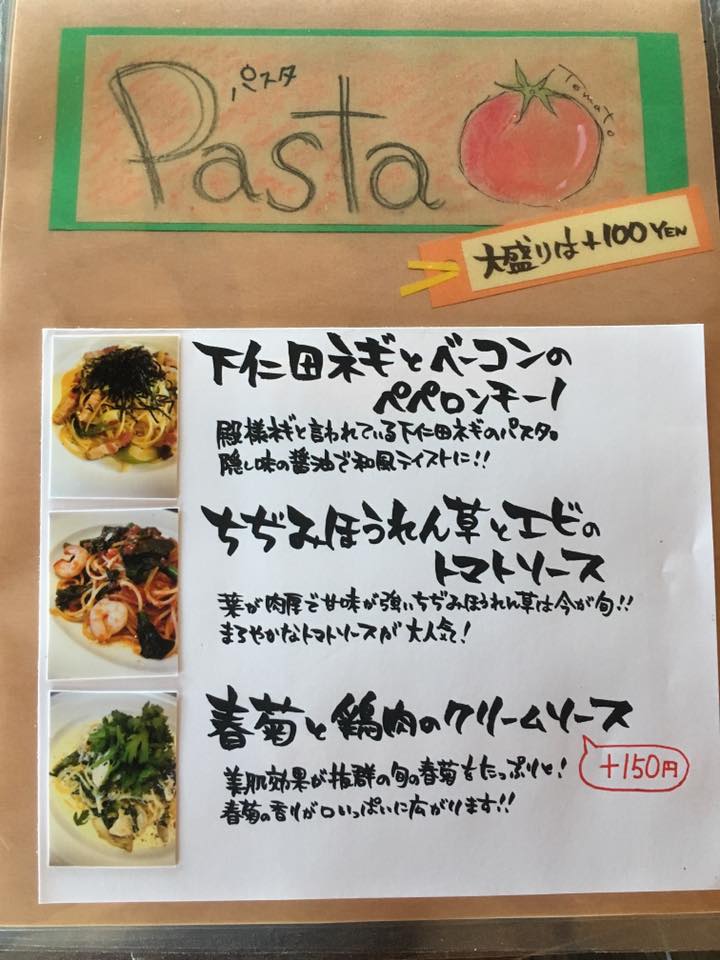 Pasta
パスタ
Tomato
大盛りは+100YEN
下仁田ネギとベーコンの
ペペロンチーノ
殿様ネギと言われている下仁田ネギのパスタ。
隠し味の醤油で和風テイストに!!
ちぢみほうれん草とエビの
トマトソース
葉が肉厚で甘味が強いちぢみほうれん草は今が旬!!
まろやかなトマトソースが大人気!
春菊と鶏肉のクリームソース
+150円
美肌効果が抜群の旬の春菊をたっぷりと!
春菊の香りが口いっぱいに広がります!!